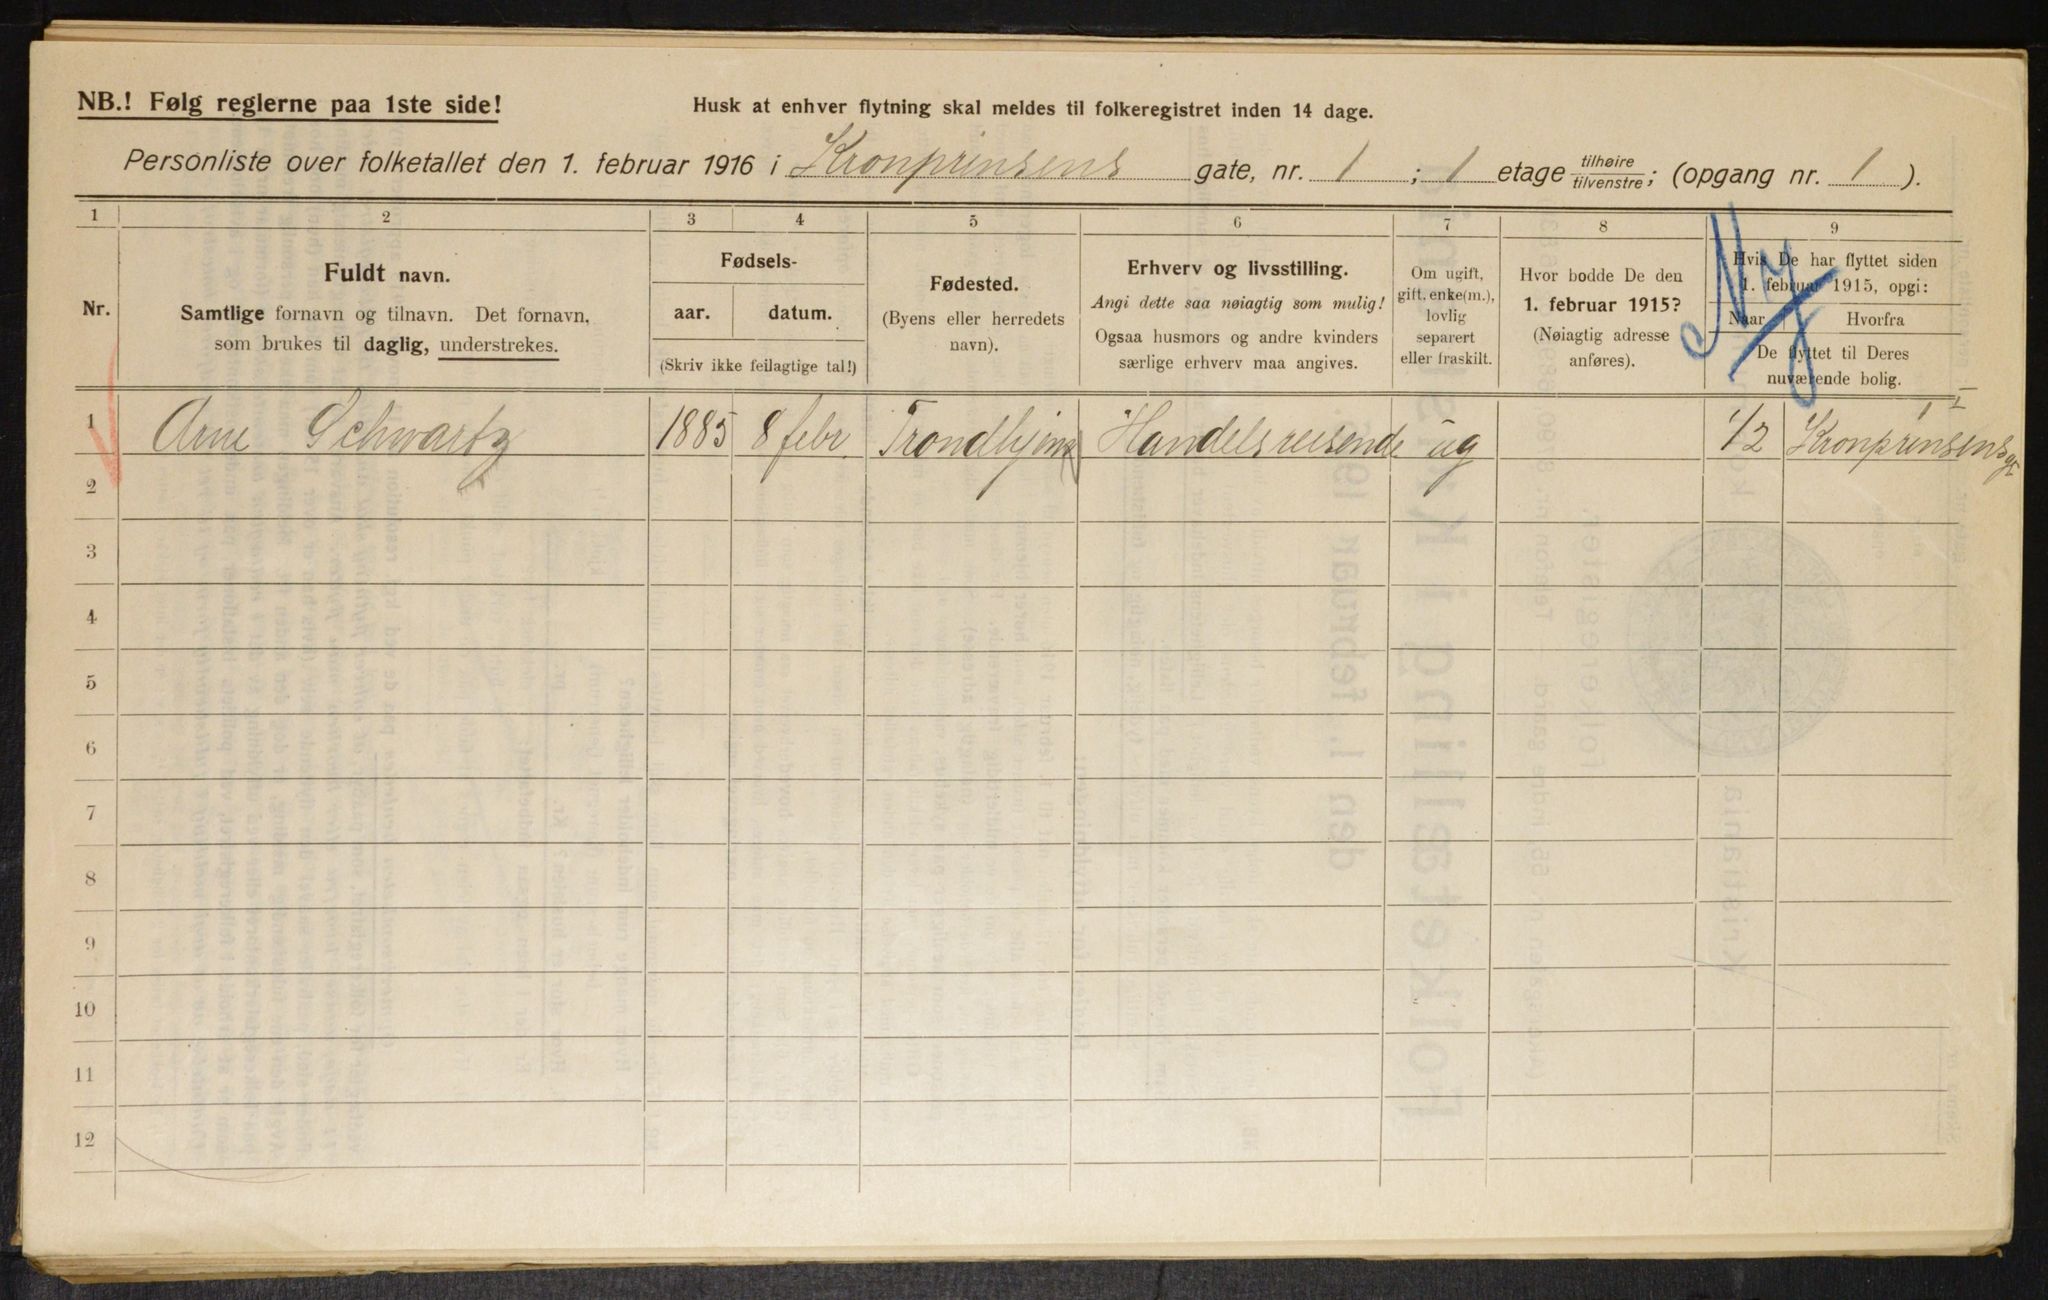 NB.! Følg reglerne paa 1ste side!
Husk at enhver flytning skal meldes til folkeregistret inden 14 dage.
Personliste over folketallet den 1. februar 1916 i Kronprinsens gate, nr. 1 ; 1 etage tilhøire/tilvenstre; (opgang nr. 1 ).
1 2 3 4 5 6 7 8 9
Ny
Nr.
Fuldt navn.
Samtlige fornavn og tilnavn. Det fornavn,
som brukes til daglig, understrekes.
Fødsels-
aar. datum.
(Skriv ikke feilagtige tal!)
Fødested.
(Byens eller herredets
navn).
Erhverv og livsstilling.
Angi dette saa nøiagtig som mulig!
Ogsaa husmors og andre kvinders
særlige erhverv maa angives.
Om ugift,
gift, enke(m.),
lovlig
separert
eller fraskilt.
Hvor bodde De den
1. februar 1915?
(Nøiagtig adresse
anføres).
Hvis De har flyttet siden
1. februar 1915, opgi:
Naar Hvorfra
De flyttet til Deres
nuværende bolig.
1 Arne Schwartz 1885 8 febr. Trondhjem Handelsreisende ug 1/2 Kronprinsensgt 1 I
2
3
4
5
6
7
8
9
10
11
12